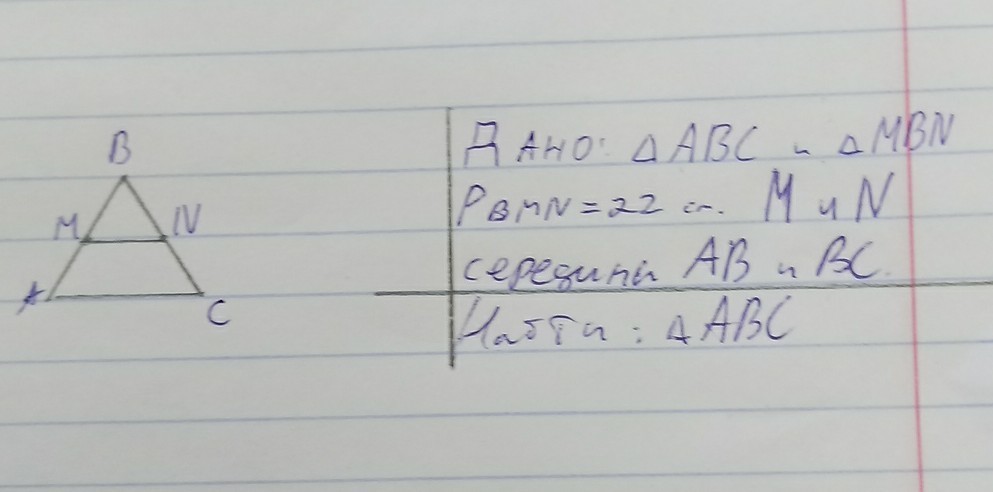 B
M N
A C
Дано: △ABC и △MBN
PBMN = 22 см. M и N
середины AB и BC.
Найти: △ABC